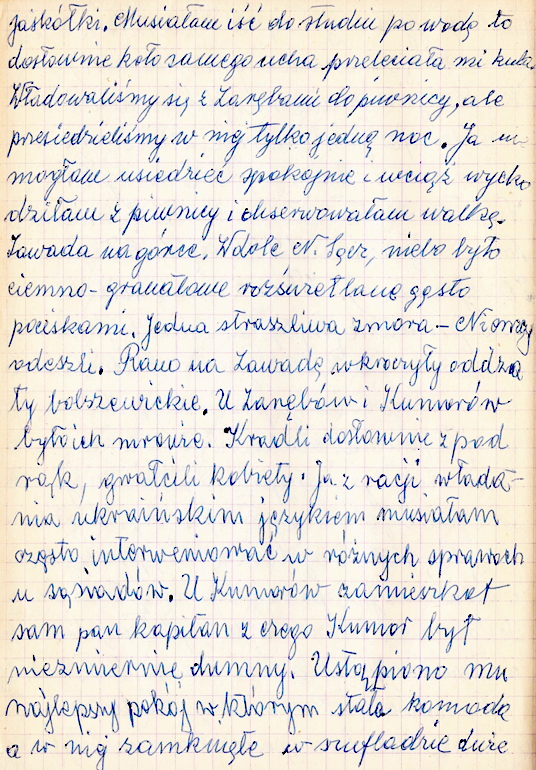 jaskółki. Musiałam iść do studni po wodę to
dosłownie koło samego ucha przeleciała mi kula.
Władowaliśmy się z Zarębami do piwnicy, ale
przesiedzieliśmy w niej tylko jedną noc. Ja nie
mogłam usiedzieć spokojnie i wciąż wycho
dziłam z piwnicy i obserwowałam walkę.
Zawada na górce. W dole N. Sącz, niebo było
ciemno-granatowe rozświetlane gęsto
pociskami. Jedna straszliwa zmora - Niemcy
odeszli. Rano na Zawadę wkroczyły oddzia
ły bolszewickie. U Zarębów i Kumorów
było ich mrowie. Kradli dosłownie z pod
rąk, gwałcili kobiety. Ja z racji włada-
nia ukraińskim językiem musiałam
często interweniować w różnych sprawach
u sąsiadów. U Kumorów zamieszkał
sam pan kapitan z czego Kumor był
niezmiernie dumny. Ustąpiono mu
najlepszy pokój w którym stała komoda
a w niej zamknęte w szufladzie duże